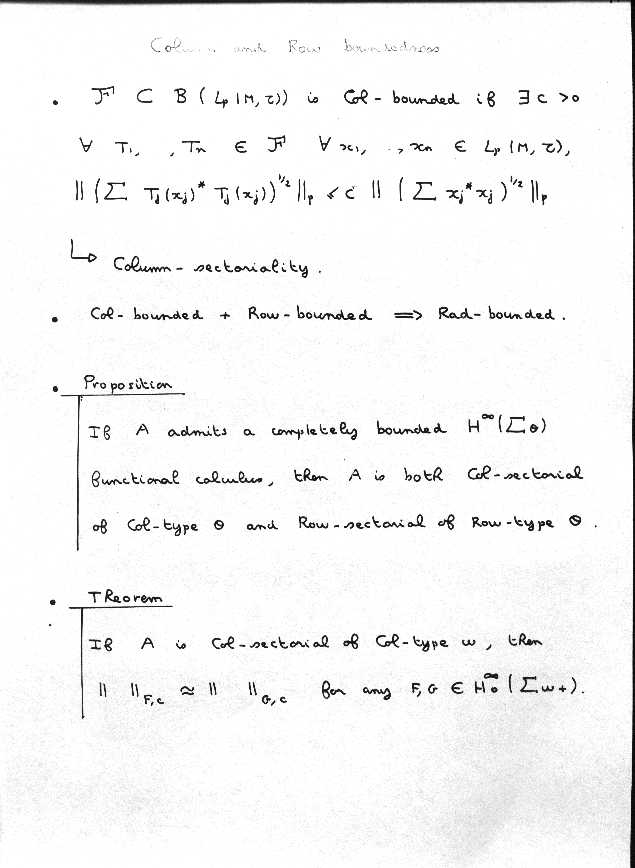 Column and Row boundedness
• F ⊂ B(Lp(M,τ)) is Col-bounded if ∃ c >0
∀ T1, , Tn ∈ F ∀ x1, .., xn ∈ Lp(M,τ),
||(∑ Tj(xj)* Tj(xj))^1/2||p ≤ c ||(∑ xj* xj)^1/2||p
↳ Column-sectoriality.
• Col-bounded + Row-bounded ⟹ Rad-bounded.
• Proposition
If A admits a completely bounded H^∞(∑θ)
functional calculus, then A is both Col-sectorial
of Col-type θ and Row-sectorial of Row-type θ.
• Theorem
If A is Col-sectorial of Col-type w, then
|| ||F,c ≈ || ||G,c for any F,G ∈ H0^∞(∑w+).